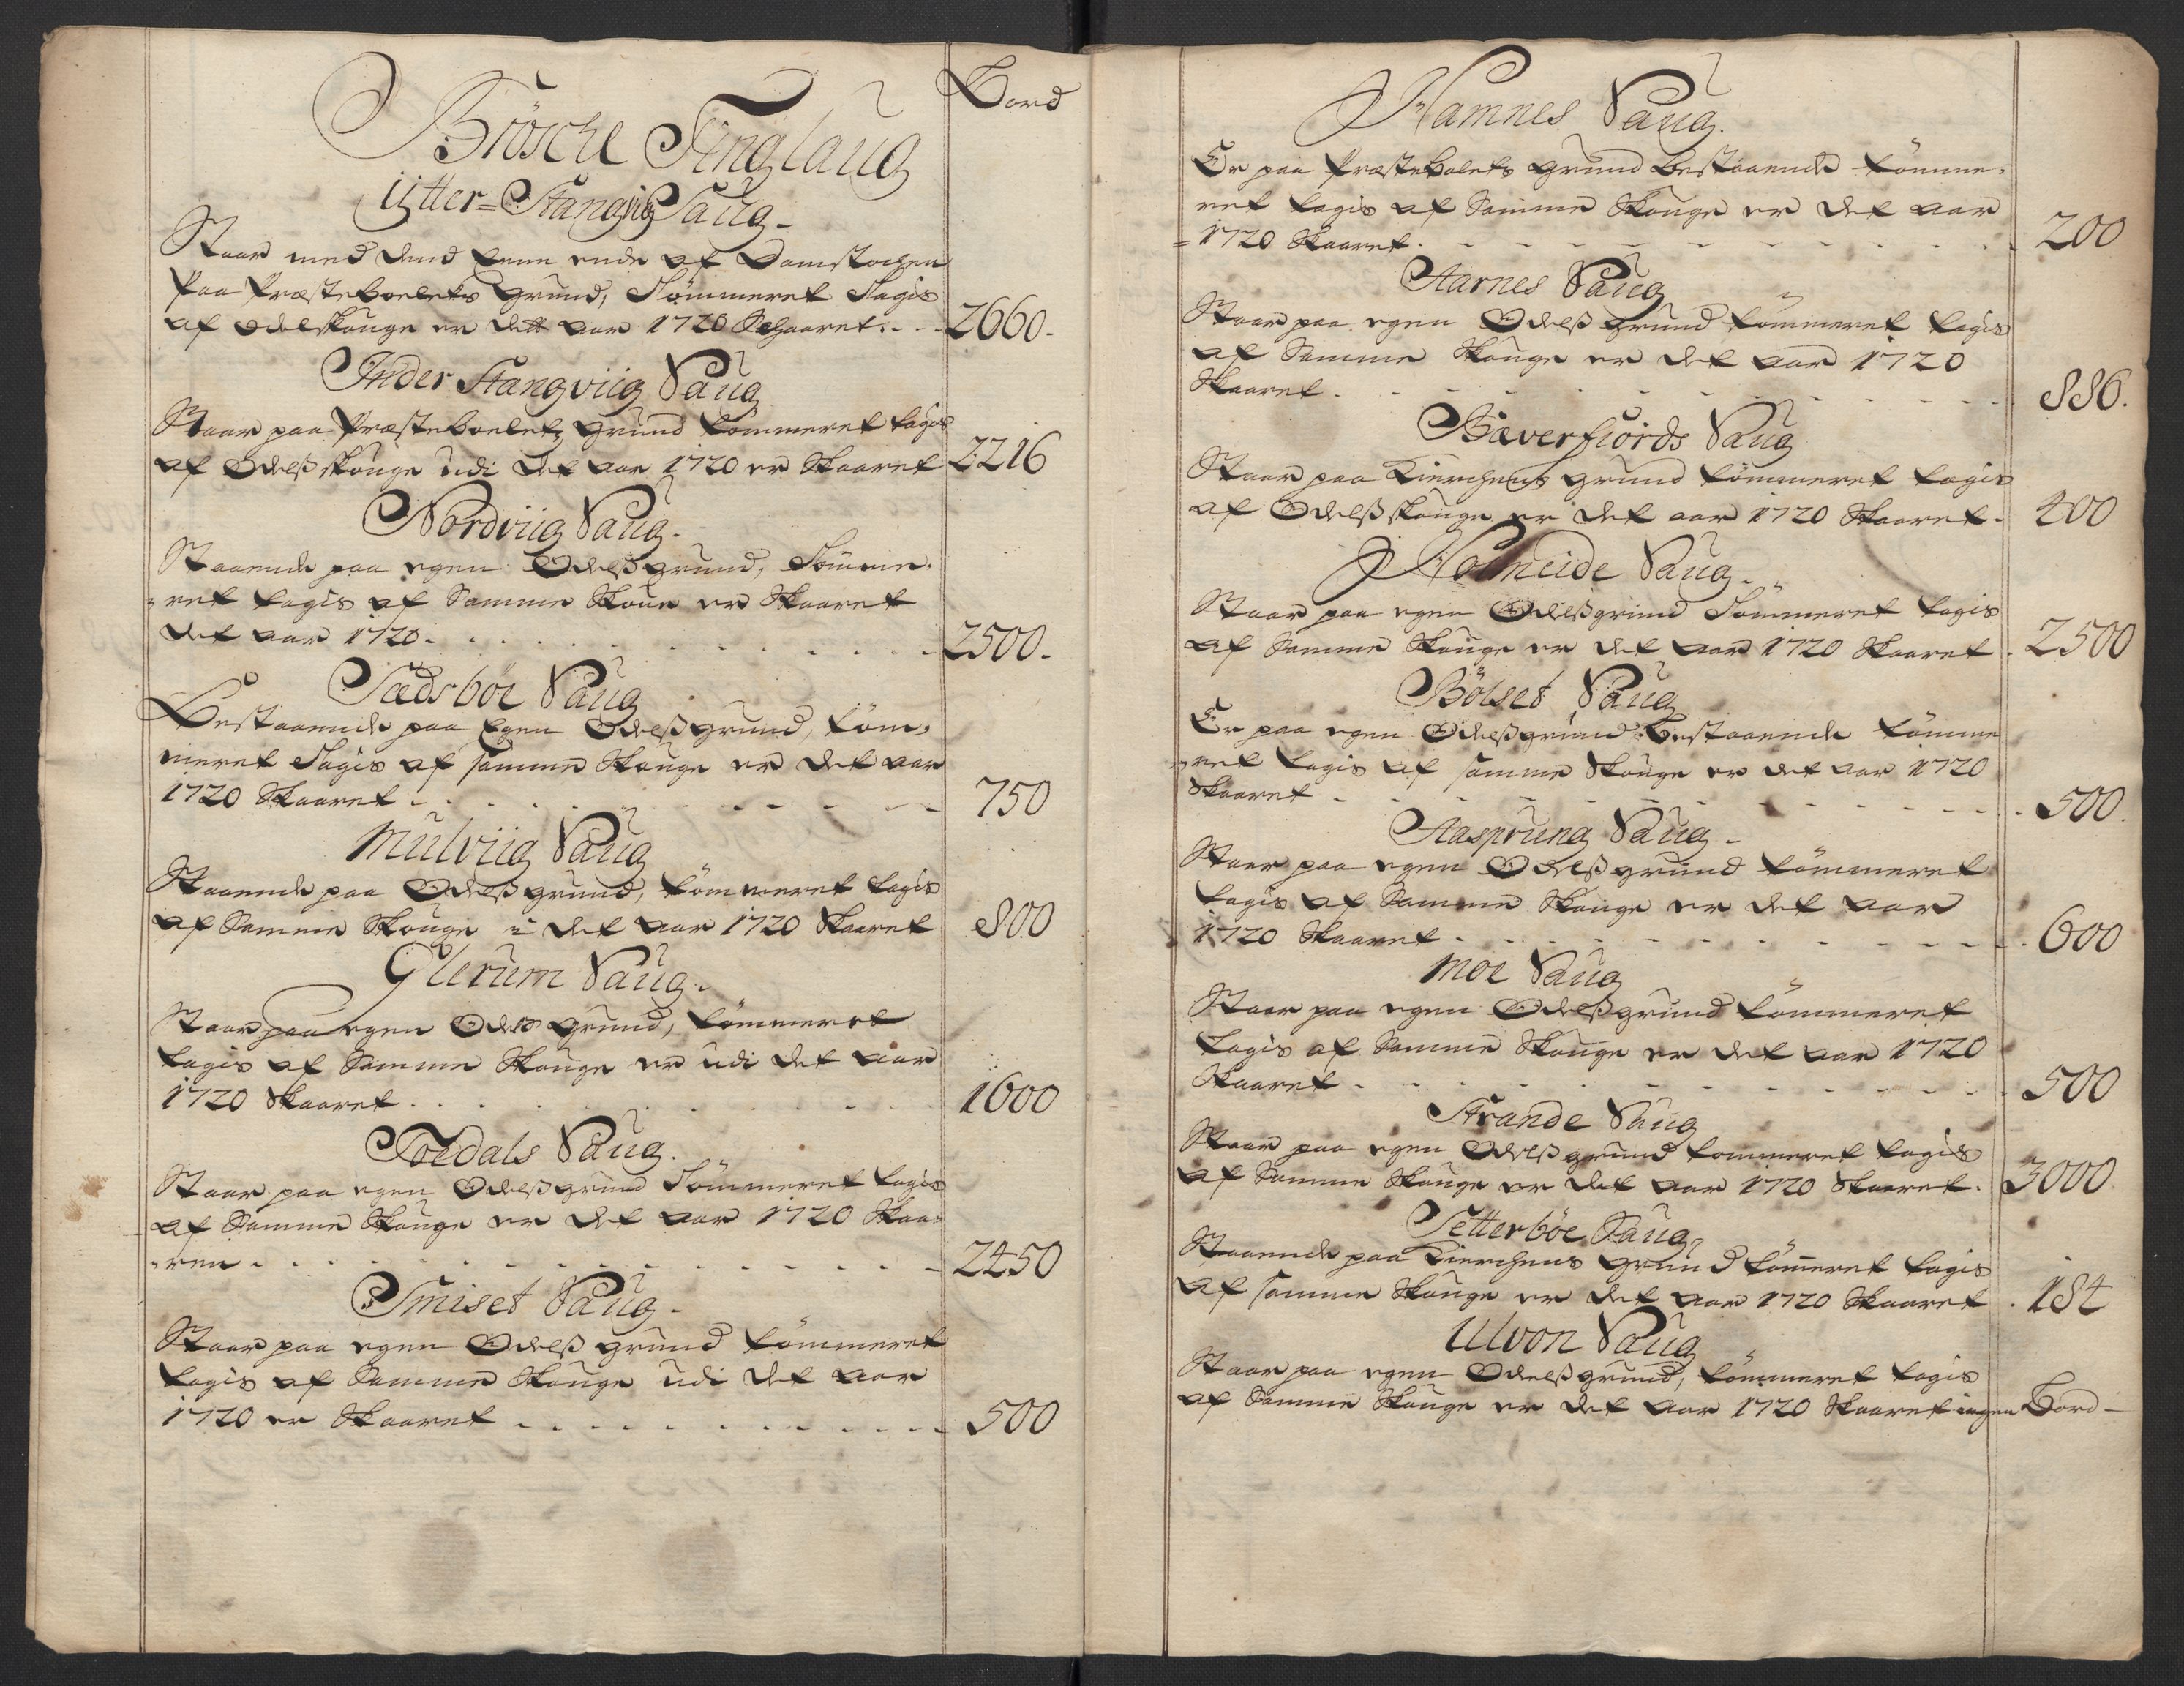 Bord
Brösche Tinglaug
Ytter=Stangvig Saug.
Staar med dend Eene ende af Damstochen
Paa Præsteboelets grund, Tømmeret Tagis
af odelskouge er dett aar 1720 Schaaret. 2660.
Inder Stangviig Saug
Staar paa Præsteboelets grund tømmeret tagis
af Odelsskouge udi det aar 1720 er Skaaret 2216
Nordviig Saug.
Staaende paa egen Odelsgrund, Tømme-
ret tagis af Samme Skoue er Skaaret
det aar 1720. 2500.
Sædsböe Saug
Bestaaende paa Egen Odelsgrund, tøm-
meret Tagis af samme Skouge er det aar
1720 Skaaret 750
Mulviig Saug
Staaende paa Odelsgrund, tømmeret tagis
af Samme Skouge i det aar 1720 Skaaret 800
Glerum Saug.
Staar paa egen Odels grund, tømmeret
tagis af Samme Skouge er udi det aar
1720 Skaaret. 1600
Toedals Saug.
Staar paa egen Odelsgrund Tømmeret tagis
af Samme Skouge er det aar 1720 Skaa-
ren 2450
Smiset Saug.
Staar paa egen Odelsgrund tømmeret
tagis af Samme Skouge udi det aar
1720 er Skaaret 500
Hamnes Saug.
Er paa Præstebolets grund bestaaende tømme-
ret tagis af Samme Skouge er det aar
1720 Skaaret. 200
Aarnes Saug
Staar paa egen Odelsgrund tømmeret tagis
af Samme Skouge er det aar 1720
Skaaret. 886.
Bæverfiords Saug
Staar paa Kierchens grund tømmeret tagis
af Odelsskouge er det aar 1720 Skaaret. 400
Holmeide Saug.
Staar paa egen Odelsgrund Tømmeret tagis
af Samme Skouge er det aar 1720 Skaaret. 2500
Bölset Saug
Er paa egen Odelsgrund bestaaende tømme
ret tagis af samme Skouge er det aar 1720
Skaaret 500.
Aasprung Saug.
Staar paa egen Odelsgrund tømmeret
tagis af Samme Skouge er det aar
1720 Skaaret. 600
Moe Saug
Staar paa egen Odelsgrund tømmeret
tagis af Samme Skouge er det aar 1720
Skaaret. 500
Strande Saug
Staar paa egen Odelsgrund tommeret tagis
af Samme Skouge er det aar 1720 Skaaret. 3000
Setterböe Saug
Staaende paa Kierchens grund tømeret tagis
af samme Skouge er det aar 1720 Skaaret. 184
Ulvon Saug
Staar paa egen Odelsgrund, tømmeret tagis
af Samme Skouge er det aar 1720 Skaaret ingen Bord